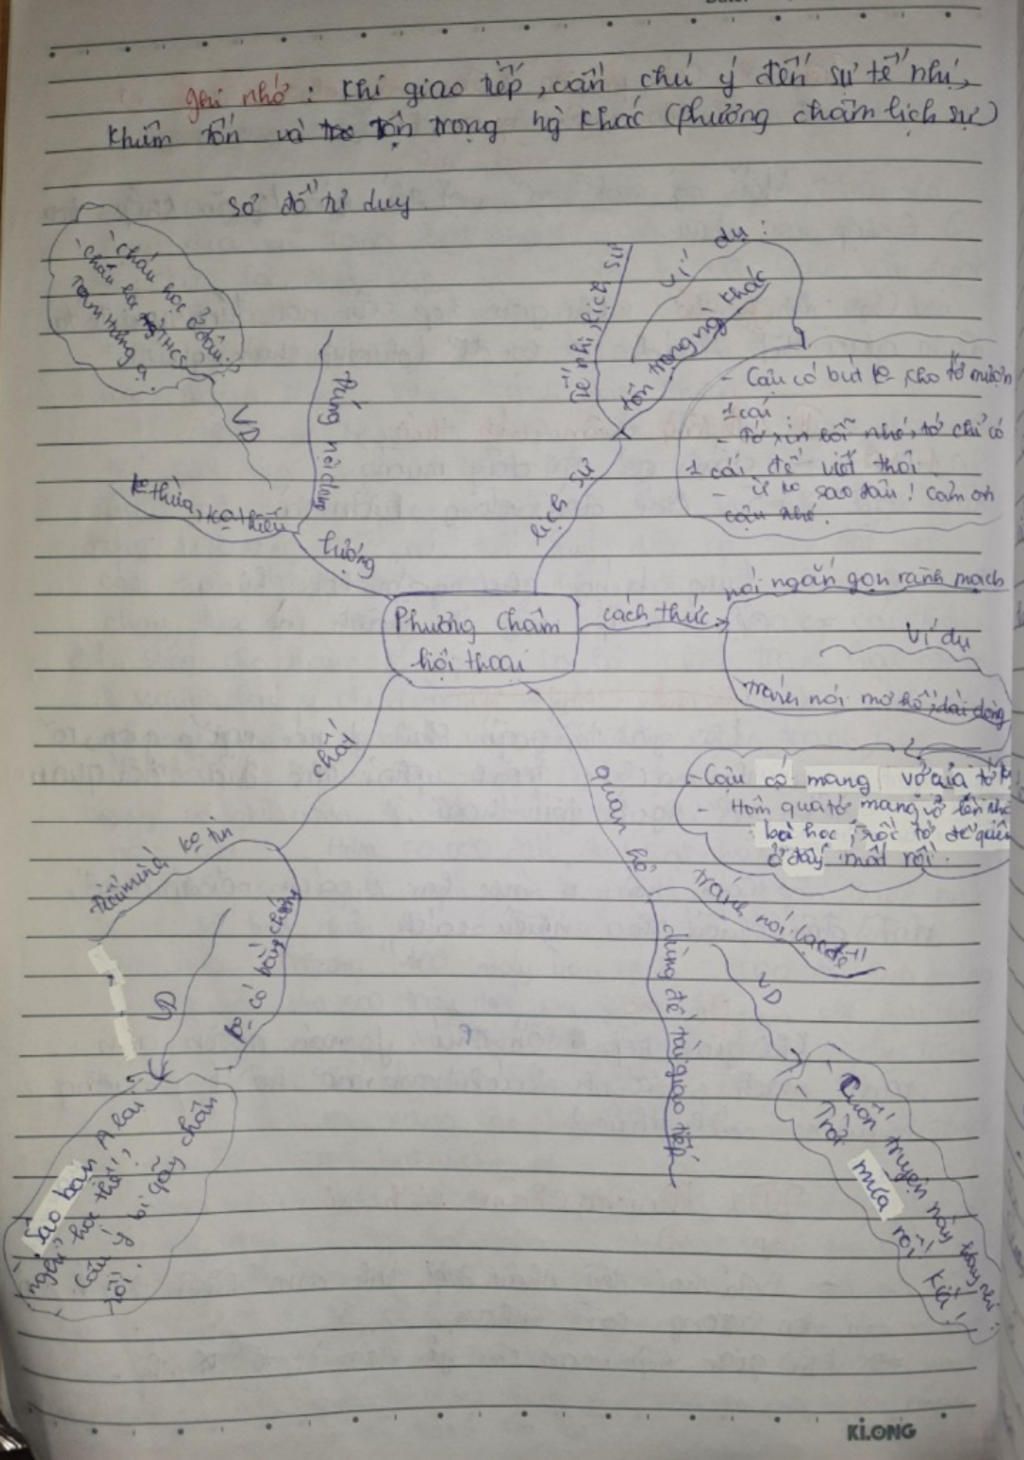 ghi nhớ : Khi giao tiếp, cần chú ý đến sự tế nhị,
khiêm tốn và tôn trọng ng khác (phương châm lịch sự)
sơ đồ tư duy
- cháu học ở đâu?
- cháu học THCS
Tam Hưng ạ.
VD
ko thừa, ko thiếu
đúng nội dung
lượng
Tế nhị, lịch sự
Ví dụ :
tôn trọng ng khác
lịch sự
- Cậu có bút ko, cho tớ mượn
1 cái.
- Tớ xin lỗi nhé, tớ chỉ có
1 cái để viết thôi.
- ừ ko sao đâu! Cảm ơn
cậu nhé.
Phương Châm
hội thoại
cách thức
nói ngắn gọn rành mạch
Ví dụ
tránh nói mơ hồ, dài dòng
- Cậu có mang vở của tớ
- Hôm qua tớ mang vở lên nhà
bà học, rồi tớ để quên
ở đấy mất rồi.
chất
ko tin
ko có bằng chứng
VD
- Sao bạn A lại
nghỉ học thế?
Cậu ý bị gãy chân
rồi.
quan hệ
tránh nói lạc đề
dùng đề tài giao tiếp
VD
- Cuốn truyện này hay nhỉ!
- Trời mưa rồi kìa!
KLONG